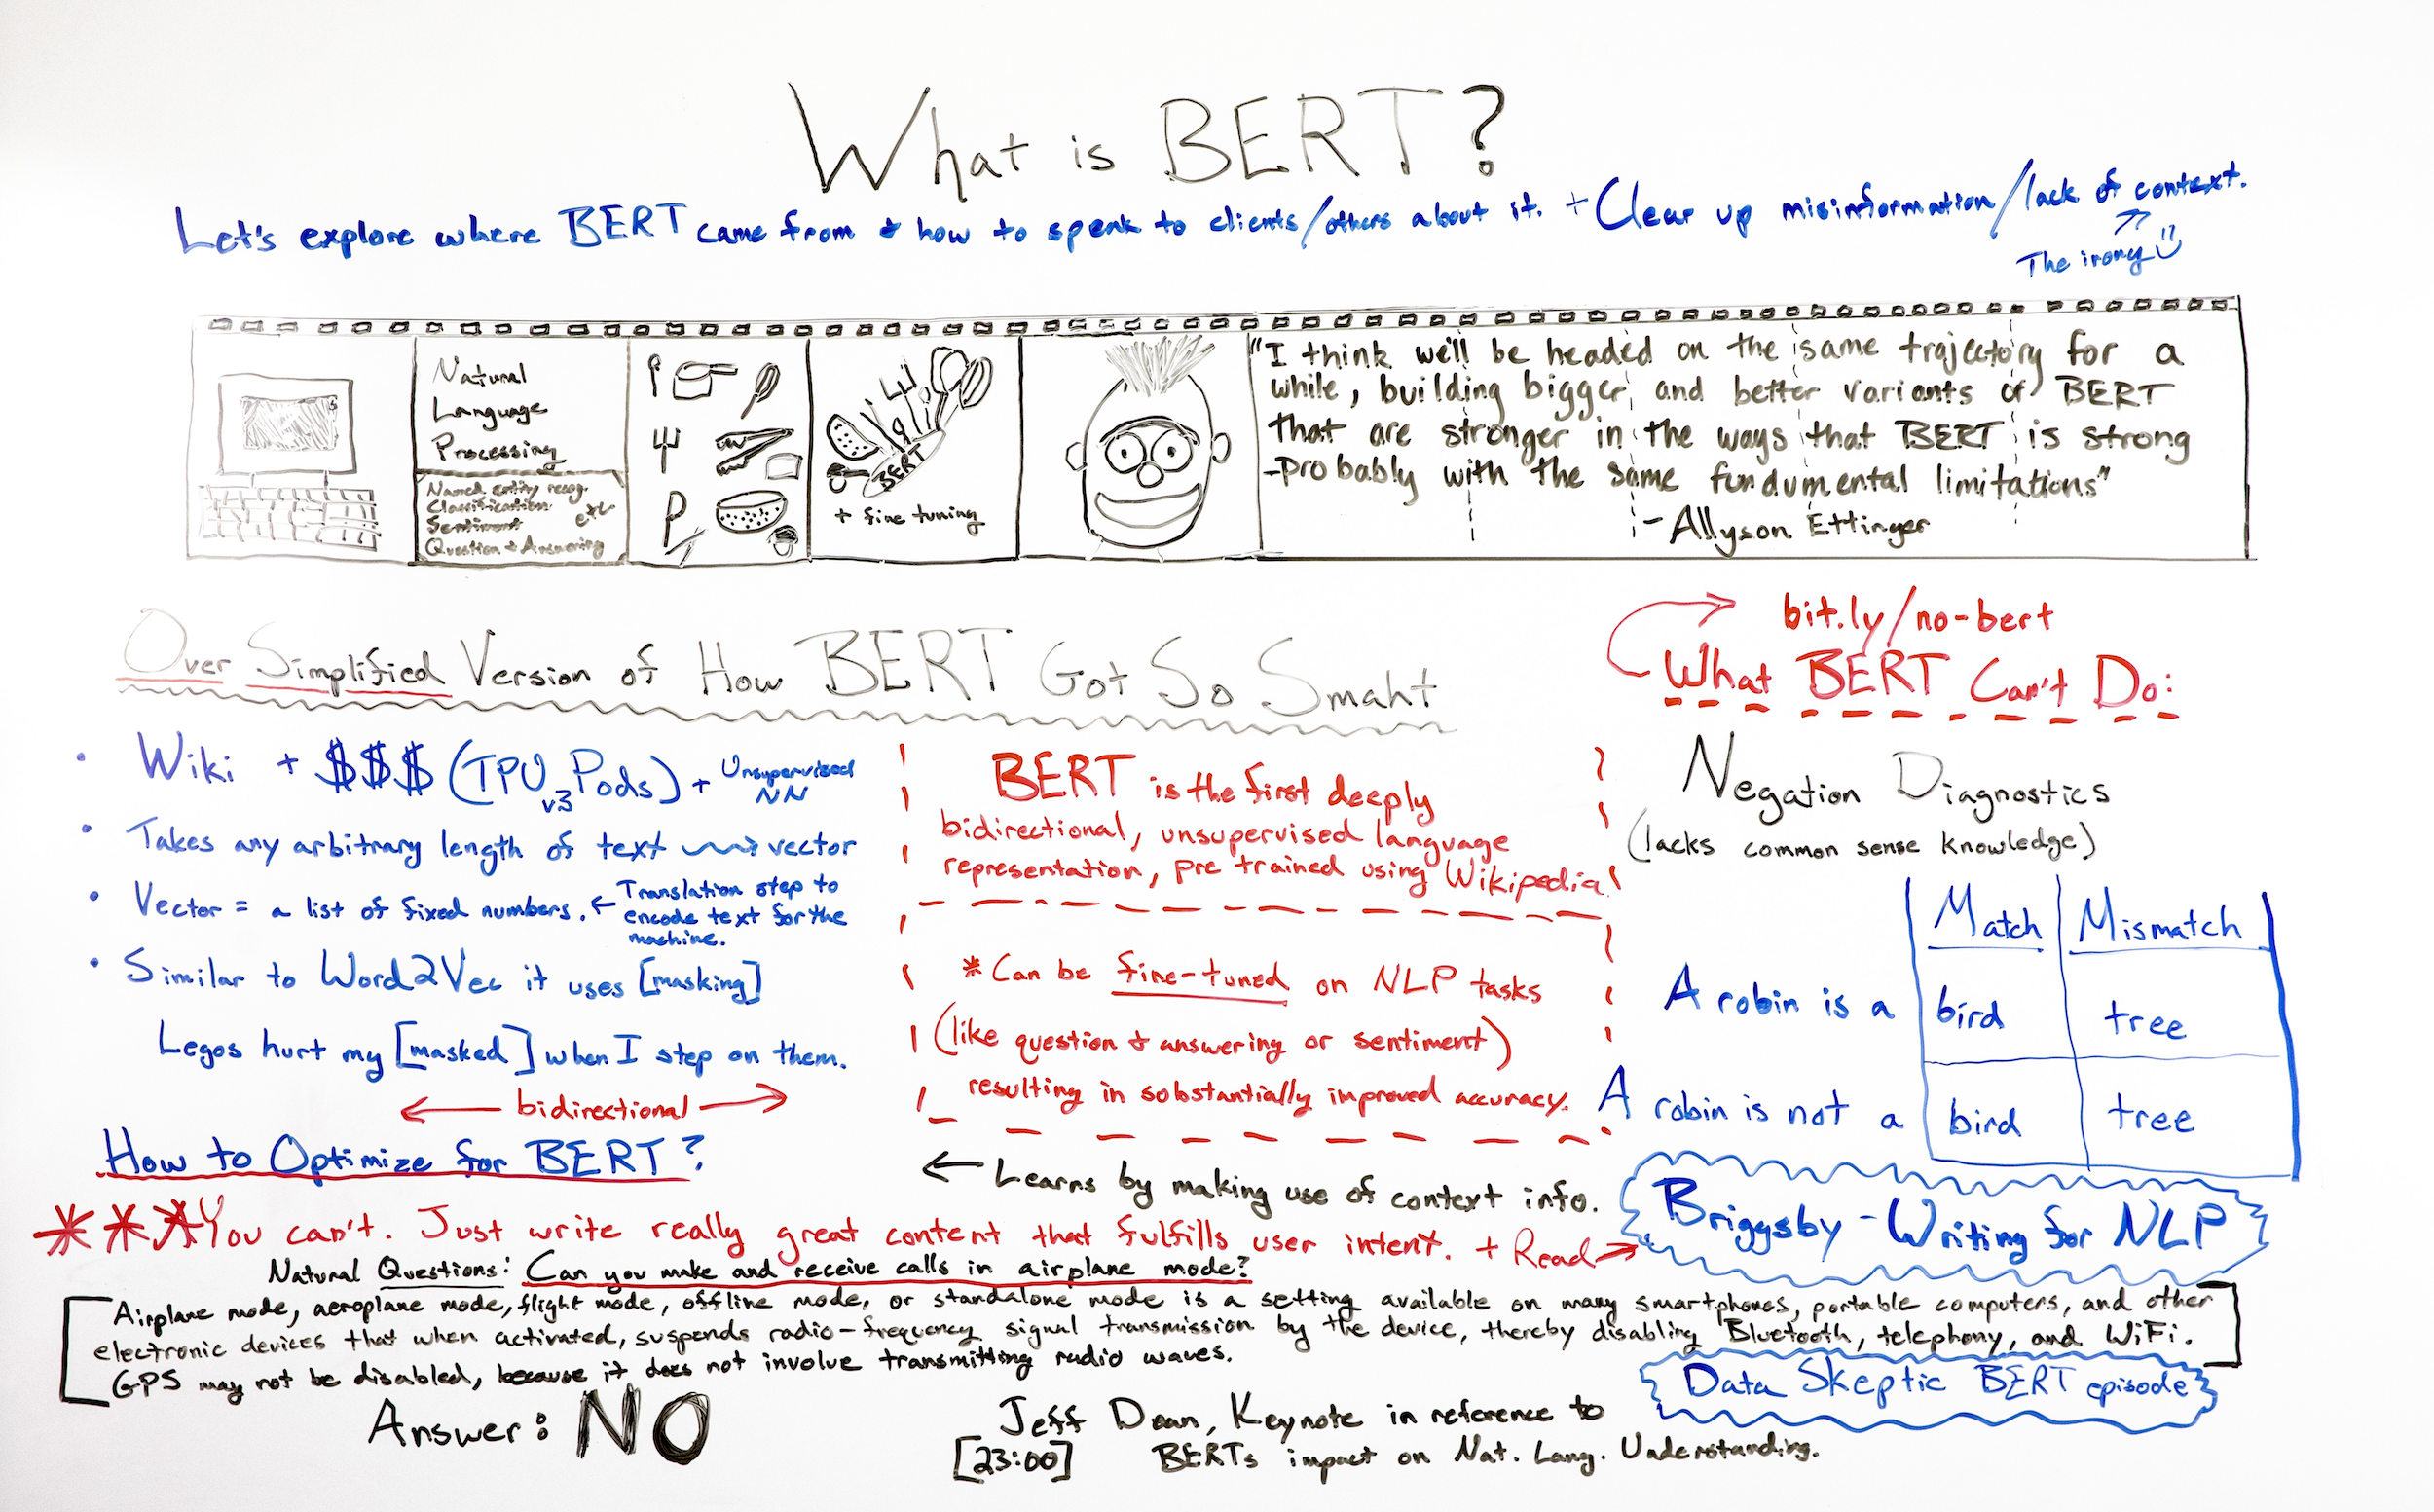 What is BERT?
Let's explore where BERT came from + how to speak to clients/others about it. + Clear up misinformation/lack of context.
The irony
Natural
Language
Processing
Named entity recog.
Classification
Sentiment etc
Question + Answering
BERT
+ fine tuning
"I think we'll be headed on the same trajectory for a
while, building bigger and better variants of BERT
that are stronger in the ways that BERT is strong
-probably with the same fundumental limitations"
- Allyson Ettinger
Over Simplified Version of How BERT Got So Smaht
• Wiki + $$$ (TPU v3 Pods) + Unsupervised
NN
• Takes any arbitrary length of text → vector
• Vector = a list of fixed numbers. ← Translation step to
encode text for the
machine.
• Similar to Word2Vec it uses [masking]
Legos hurt my [masked] when I step on them.
← bidirectional →
BERT is the first deeply
bidirectional, unsupervised language
representation, pre trained using Wikipedia!
* Can be fine-tuned on NLP tasks
(like question + answering or sentiment)
resulting in substantially improved accuracy.
← Learns by making use of context info.
bit.ly/no-bert
What BERT Can't Do:
Negation Diagnostics
(lacks common sense knowledge)
Match Mismatch
A robin is a bird tree
A robin is not a bird tree
How to Optimize for BERT?
***You can't. Just write really great content that fulfills user intent. + Read →
Briggsby - Writing for NLP
Natural Questions: Can you make and receive calls in airplane mode?
[Airplane mode, aeroplane mode, flight mode, offline mode, or standalone mode is a setting available on many smartphones, portable computers, and other
electronic devices that when activated, suspends radio-frequency signal transmission by the device, thereby disabling Bluetooth, telephony, and WiFi.
GPS may not be disabled, because it does not involve transmitting radio waves.]
Data Skeptic BERT episode
Answer: NO
Jeff Dean, Keynote in reference to
[23:00] BERTs impact on Nat. Lang. Understanding.